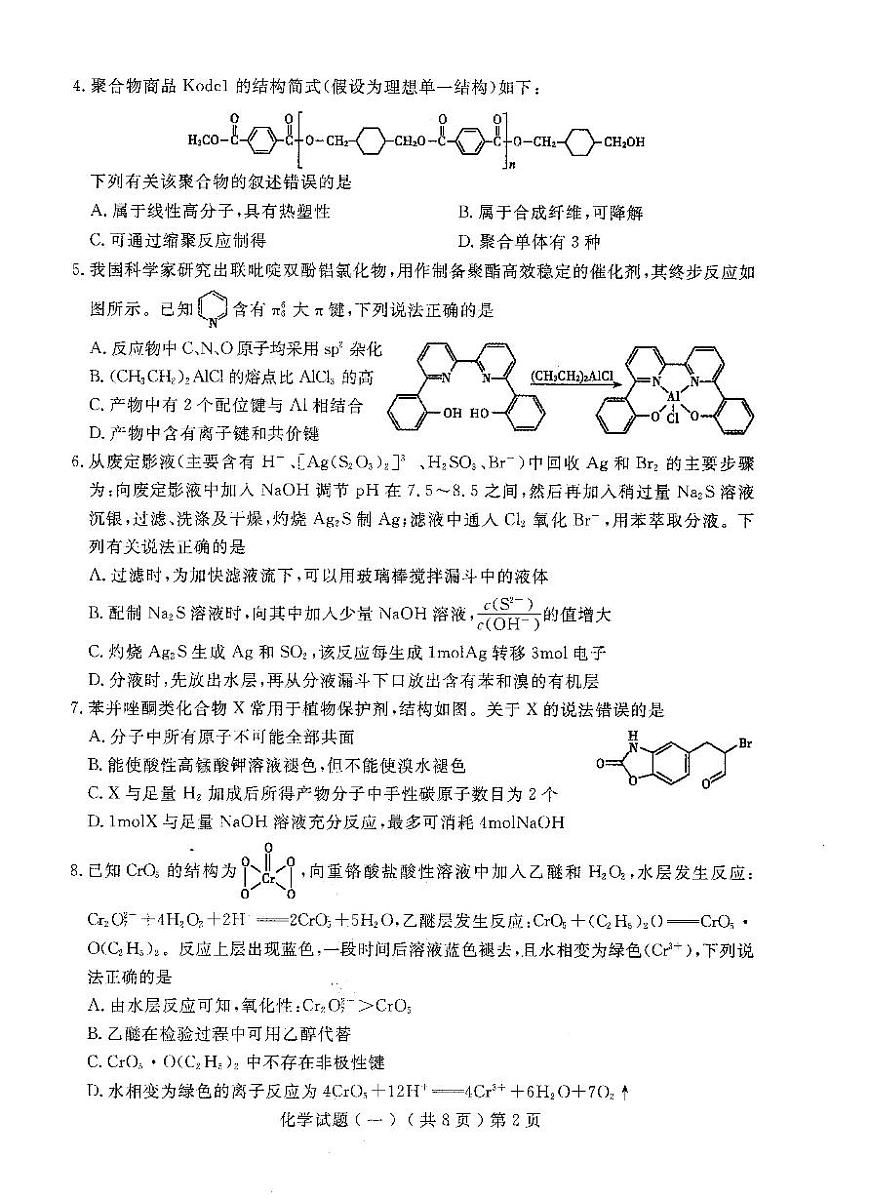 4. 聚合物商品 Kodel 的结构简式(假设为理想单一结构)如下：
H₃CO-C(O)- -C(O)-[O-CH₂- -CH₂O-C(O)- -C(O)]n-O-CH₂- -CH₂OH
下列有关该聚合物的叙述错误的是
A. 属于线性高分子,具有热塑性 B. 属于合成纤维,可降解
C. 可通过缩聚反应制得 D. 聚合单体有 3 种
5. 我国科学家研究出联吡啶双酚铝氯化物,用作制备聚酯高效稳定的催化剂,其终步反应如
图所示。已知 N 含有 π₆⁶ 大 π 键,下列说法正确的是
A. 反应物中 C、N、O 原子均采用 sp² 杂化
B. (CH₃CH₂)₂AlCl 的熔点比 AlCl₃ 的高
C. 产物中有 2 个配位键与 Al 相结合
D. 产物中含有离子键和共价键
N N OH HO (CH₃CH₂)₂AlCl N N Al O Cl O
6. 从废定影液(主要含有 H⁻、[Ag(S₂O₃)₂]³ 、H₂SO₃、Br⁻)中回收 Ag 和 Br₂ 的主要步骤
为:向废定影液中加入 NaOH 调节 pH 在 7.5～8.5 之间,然后再加入稍过量 Na₂S 溶液
沉银,过滤、洗涤及干燥,灼烧 Ag₂S 制 Ag;滤液中通入 Cl₂ 氧化 Br⁻,用苯萃取分液。下
列有关说法正确的是
A. 过滤时,为加快滤液流下,可以用玻璃棒搅拌漏斗中的液体
B. 配制 Na₂S 溶液时,向其中加入少量 NaOH 溶液, c(S²⁻)/c(OH⁻) 的值增大
C. 灼烧 Ag₂S 生成 Ag 和 SO₂,该反应每生成 1molAg 转移 3mol 电子
D. 分液时,先放出水层,再从分液漏斗下口放出含有苯和溴的有机层
7. 苯并唑酮类化合物 X 常用于植物保护剂,结构如图。关于 X 的说法错误的是
A. 分子中所有原子不可能全部共面
B. 能使酸性高锰酸钾溶液褪色,但不能使溴水褪色
C. X 与足量 H₂ 加成后所得产物分子中手性碳原子数目为 2 个
D. 1molX 与足量 NaOH 溶液充分反应,最多可消耗 4molNaOH
H N O O Br O
8. 已知 CrO₅ 的结构为 O O O Cr O O ,向重铬酸盐酸性溶液中加入乙醚和 H₂O₂,水层发生反应:
Cr₂O₇²⁻+4H₂O₂+2H ══2CrO₅+5H₂O,乙醚层发生反应:CrO₅+(C₂H₅)₂O══CrO₅·
O(C₂H₅)₂。反应上层出现蓝色,一段时间后溶液蓝色褪去,且水相变为绿色(Cr³⁺),下列说
法正确的是
A. 由水层反应可知,氧化性:Cr₂O₇²⁻>CrO₅
B. 乙醚在检验过程中可用乙醇代替
C. CrO₅·O(C₂H₅)₂ 中不存在非极性键
D. 水相变为绿色的离子反应为 4CrO₅+12H⁺══4Cr³⁺+6H₂O+7O₂↑
化学试题(一)(共8页)第2页